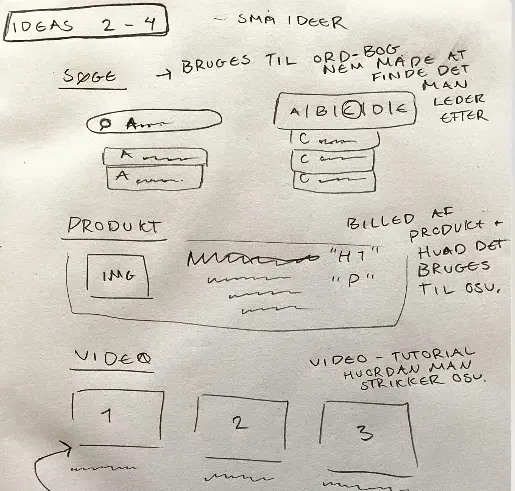 IDEAS 2-4
- SMÅ IDEER
SØGE
→ BRUGES TIL ORD-BOG
NEM MÅDE AT
FINDE DET
MAN
LEDER
EFTER
A
A
A
A|B|C|D|E
C
C
C
PRODUKT
IMG
"H1"
"P"
BILLED AF
PRODUKT +
HVAD DET
BRUGES
TIL OSV.
VIDEO
VIDEO - TUTORIAL
HVORDAN MAN
STRIKKER OSV.
1
2
3